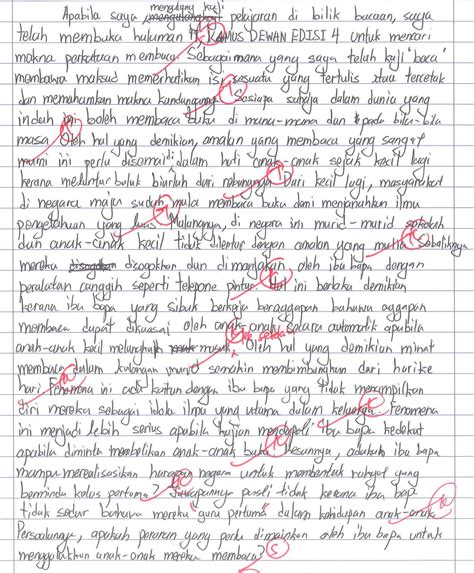 mengulang kaji
Apabila saya mengulangkaji pelajaran di bilik bacaan, saya
telah membuka halaman KAMUS DEWAN EDISI 4 untuk mencari
makna perkataan membaca. Sebagaimana yang saya telah kaji "baca"
membawa maksud memerhatikan isi sesuatu yang tertulis atau tercetak
dan memahamkan makna kandungannya. Sesiapa sahaja dalam dunia yang
indah ini boleh membaca buku di mana-mana dan pada bila-bila
masa. Oleh hal yang demikian, amalan yang membaca yang sangat
murni ini perlu disemai dalam hati anak-anak sejak kecil lagi
kerana melentur buluh biarlah dari rebungnya. Dari kecil lagi, masyarakat
di negara maju sudah mula membaca buku dan menjanahkan ilmu
pengetahuan yang luas. Malangnya, di negara ini murid-murid sekolah
dan anak-anak kecil tidak dilentur dengan amalan yang mulia. Sebaliknya
mereka disogokhan dan di manjakan oleh ibu bapa dengan
peralatan canggih seperti telepone pintar. Hal ini berlaku demikian
kerana ibu bapa yang sibuk berkerja beraggapan bahawa aggapan
membaca dapat dikuasai oleh anak-anak secara automatik apabila
anak-anak kecil melangkah masuk ke sekolah. Oleh hal yang demikian minat
membaca dalam kalangan murid semakin membimbangkan dari harike
hari. Fenomena ini ada kaitan dengan ibu bapa yang tidak menampilkan
diri mereka sebagai idola ilmu yang utama dalam keluarga. Fenomena
ini menjadi lebih serius apabila kajian mendapati ibu bapa kedekut
apabila diminta membelikan anak-anak buku. Kesannya, adakah ibu bapa
mampu merealisasikan harapan negara untuk membentuk rakyat yang
berminda kelas pertama? Jawapannya pasti tidak kerana ibu bapa
tidak sedar bahawa mereka "guru pertama" dalam kehidupan anak-anak.
Persoalannya, apakah peranan yang perlu dimainkan oleh ibu bapa untuk
menggalakkan anak-anak mereka membaca?